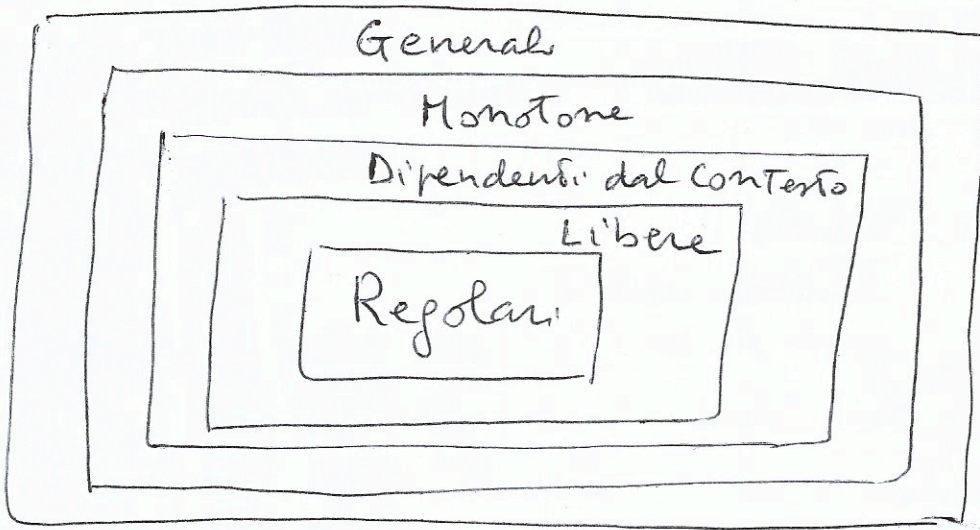 Generali
Monotone
Dipendenti dal Contesto
Libere
Regolari